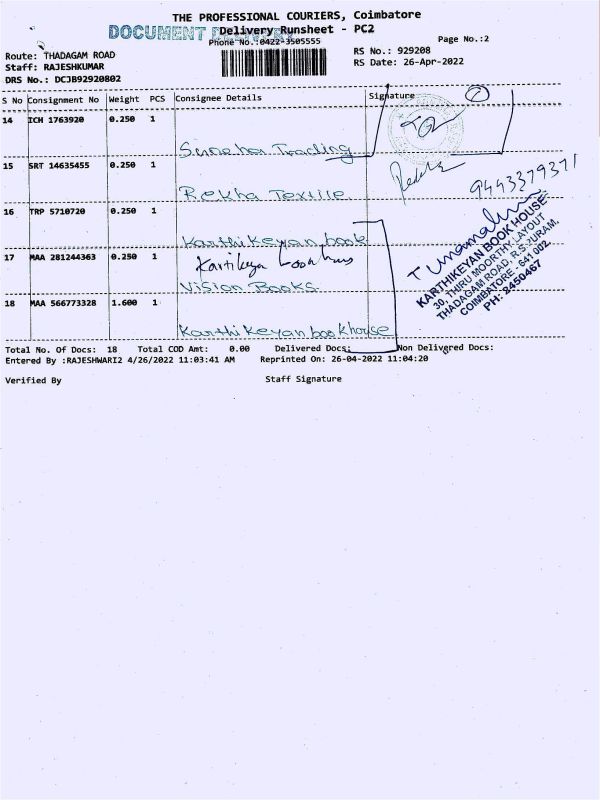 THE PROFESSIONAL COURIERS, Coimbatore
DOCUMENT DELIVERY
Delivery Runsheet - PC2
Phone No.:0422-3505555
Page No.:2
Route: THADAGAM ROAD
RS No.: 929208
Staff: RAJESHKUMAR
RS Date: 26-Apr-2022
DRS No.: DCJB92920802
S No Consignment No Weight PCS Consignee Details Signature
14 ICH 1763920 0.250 1
Trading
15 SRT 14635455 0.250 1
Rekha Textile
9443379371
16 TRP 5710720 0.250 1
Karthikeyan book
17 MAA 281244363 0.250 1
Vision Books
KARTHIKEYAN BOOK HOUSE
30, THIRU MOORTHY LAYOUT
THADAGAM ROAD, R.S. PURAM,
COIMBATORE - 641 002.
PH: 2450467
18 MAA 566773328 1.600 1
Karthikeyan bookhouse
Total No. Of Docs: 18 Total COD Amt: 0.00 Delivered Docs: Non Delivered Docs:
Entered By :RAJESHWARI2 4/26/2022 11:03:41 AM Reprinted On: 26-04-2022 11:04:20
Verified By Staff Signature